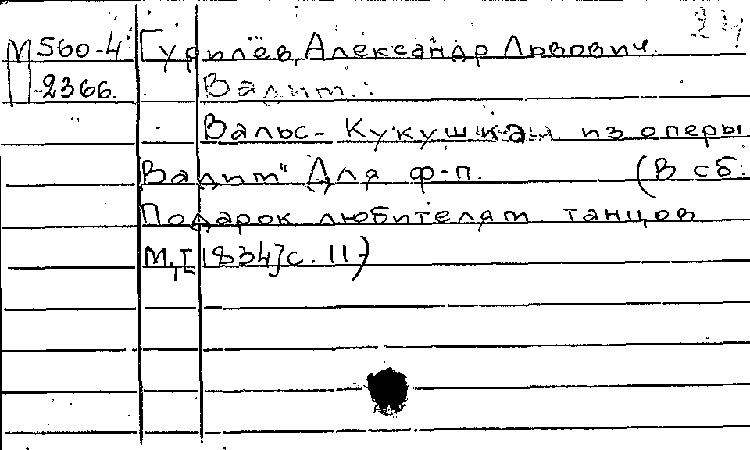 24
М 560-4 Гурилев, Александр Львович.
П 2366. Вадим.:
Вальс-Кукушкам из оперы
Вадим" Для ф-п. (В сб:
Подарок любителям танцов
М., [1834] с. 11)